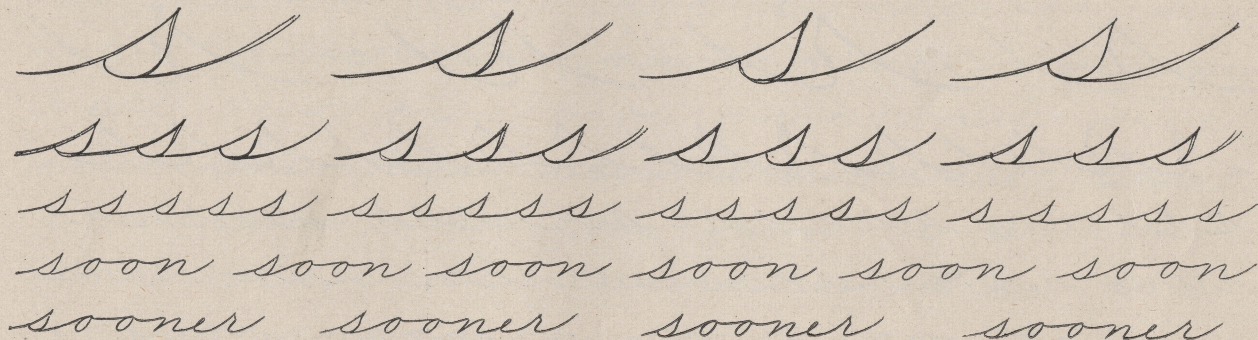 s s s s
sss sss sss sss
sssss sssss sssss sssss
soon soon soon soon soon soon
sooner sooner sooner sooner